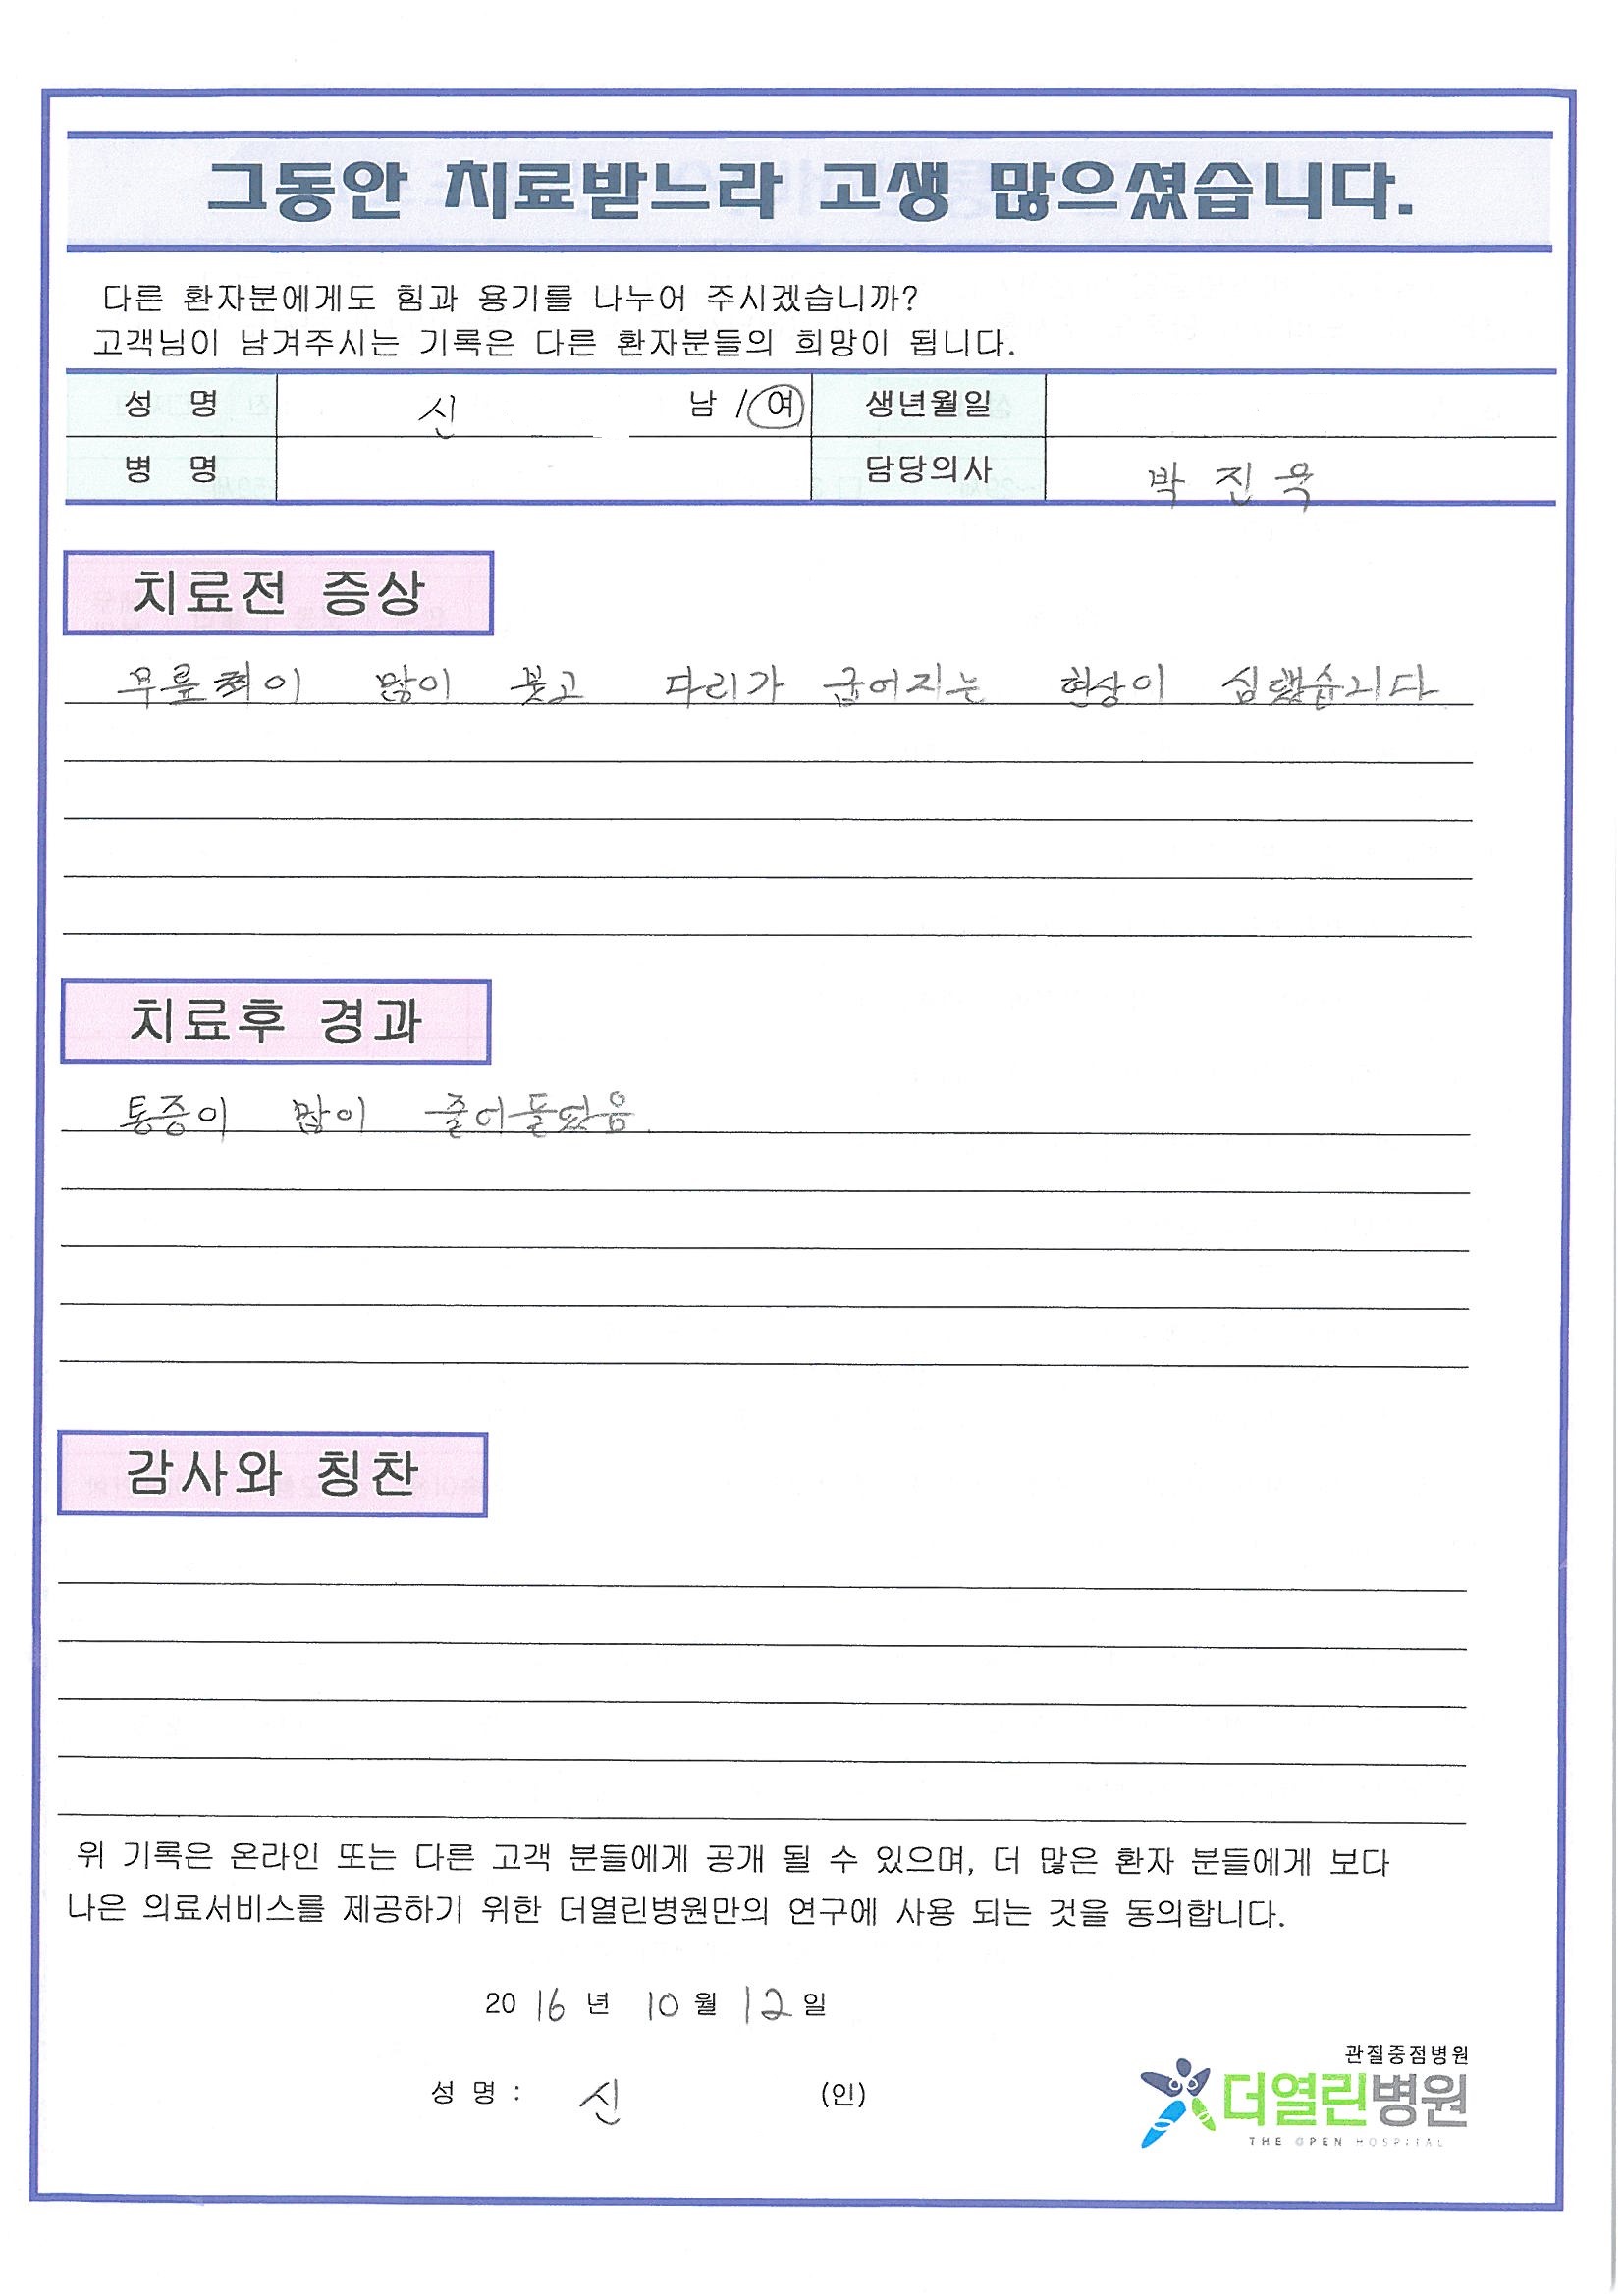 그동안 치료받느라 고생 많으셨습니다.
다른 환자분에게도 힘과 용기를 나누어 주시겠습니까?
고객님이 남겨주시는 기록은 다른 환자분들의 희망이 됩니다.
성 명 신 남 / 여 생년월일
병 명 담당의사 박 진 욱
치료전 증상
무릎이 많이 붓고 다리가 굽어지는 현상이 심했습니다
치료후 경과
통증이 많이 줄어들었음
감사와 칭찬
위 기록은 온라인 또는 다른 고객 분들에게 공개 될 수 있으며, 더 많은 환자 분들에게 보다
나은 의료서비스를 제공하기 위한 더열린병원만의 연구에 사용 되는 것을 동의합니다.
2016 년 10 월 12 일
관절중점병원
성 명 : 신 (인)
더열린병원
THE OPEN HOSPITAL